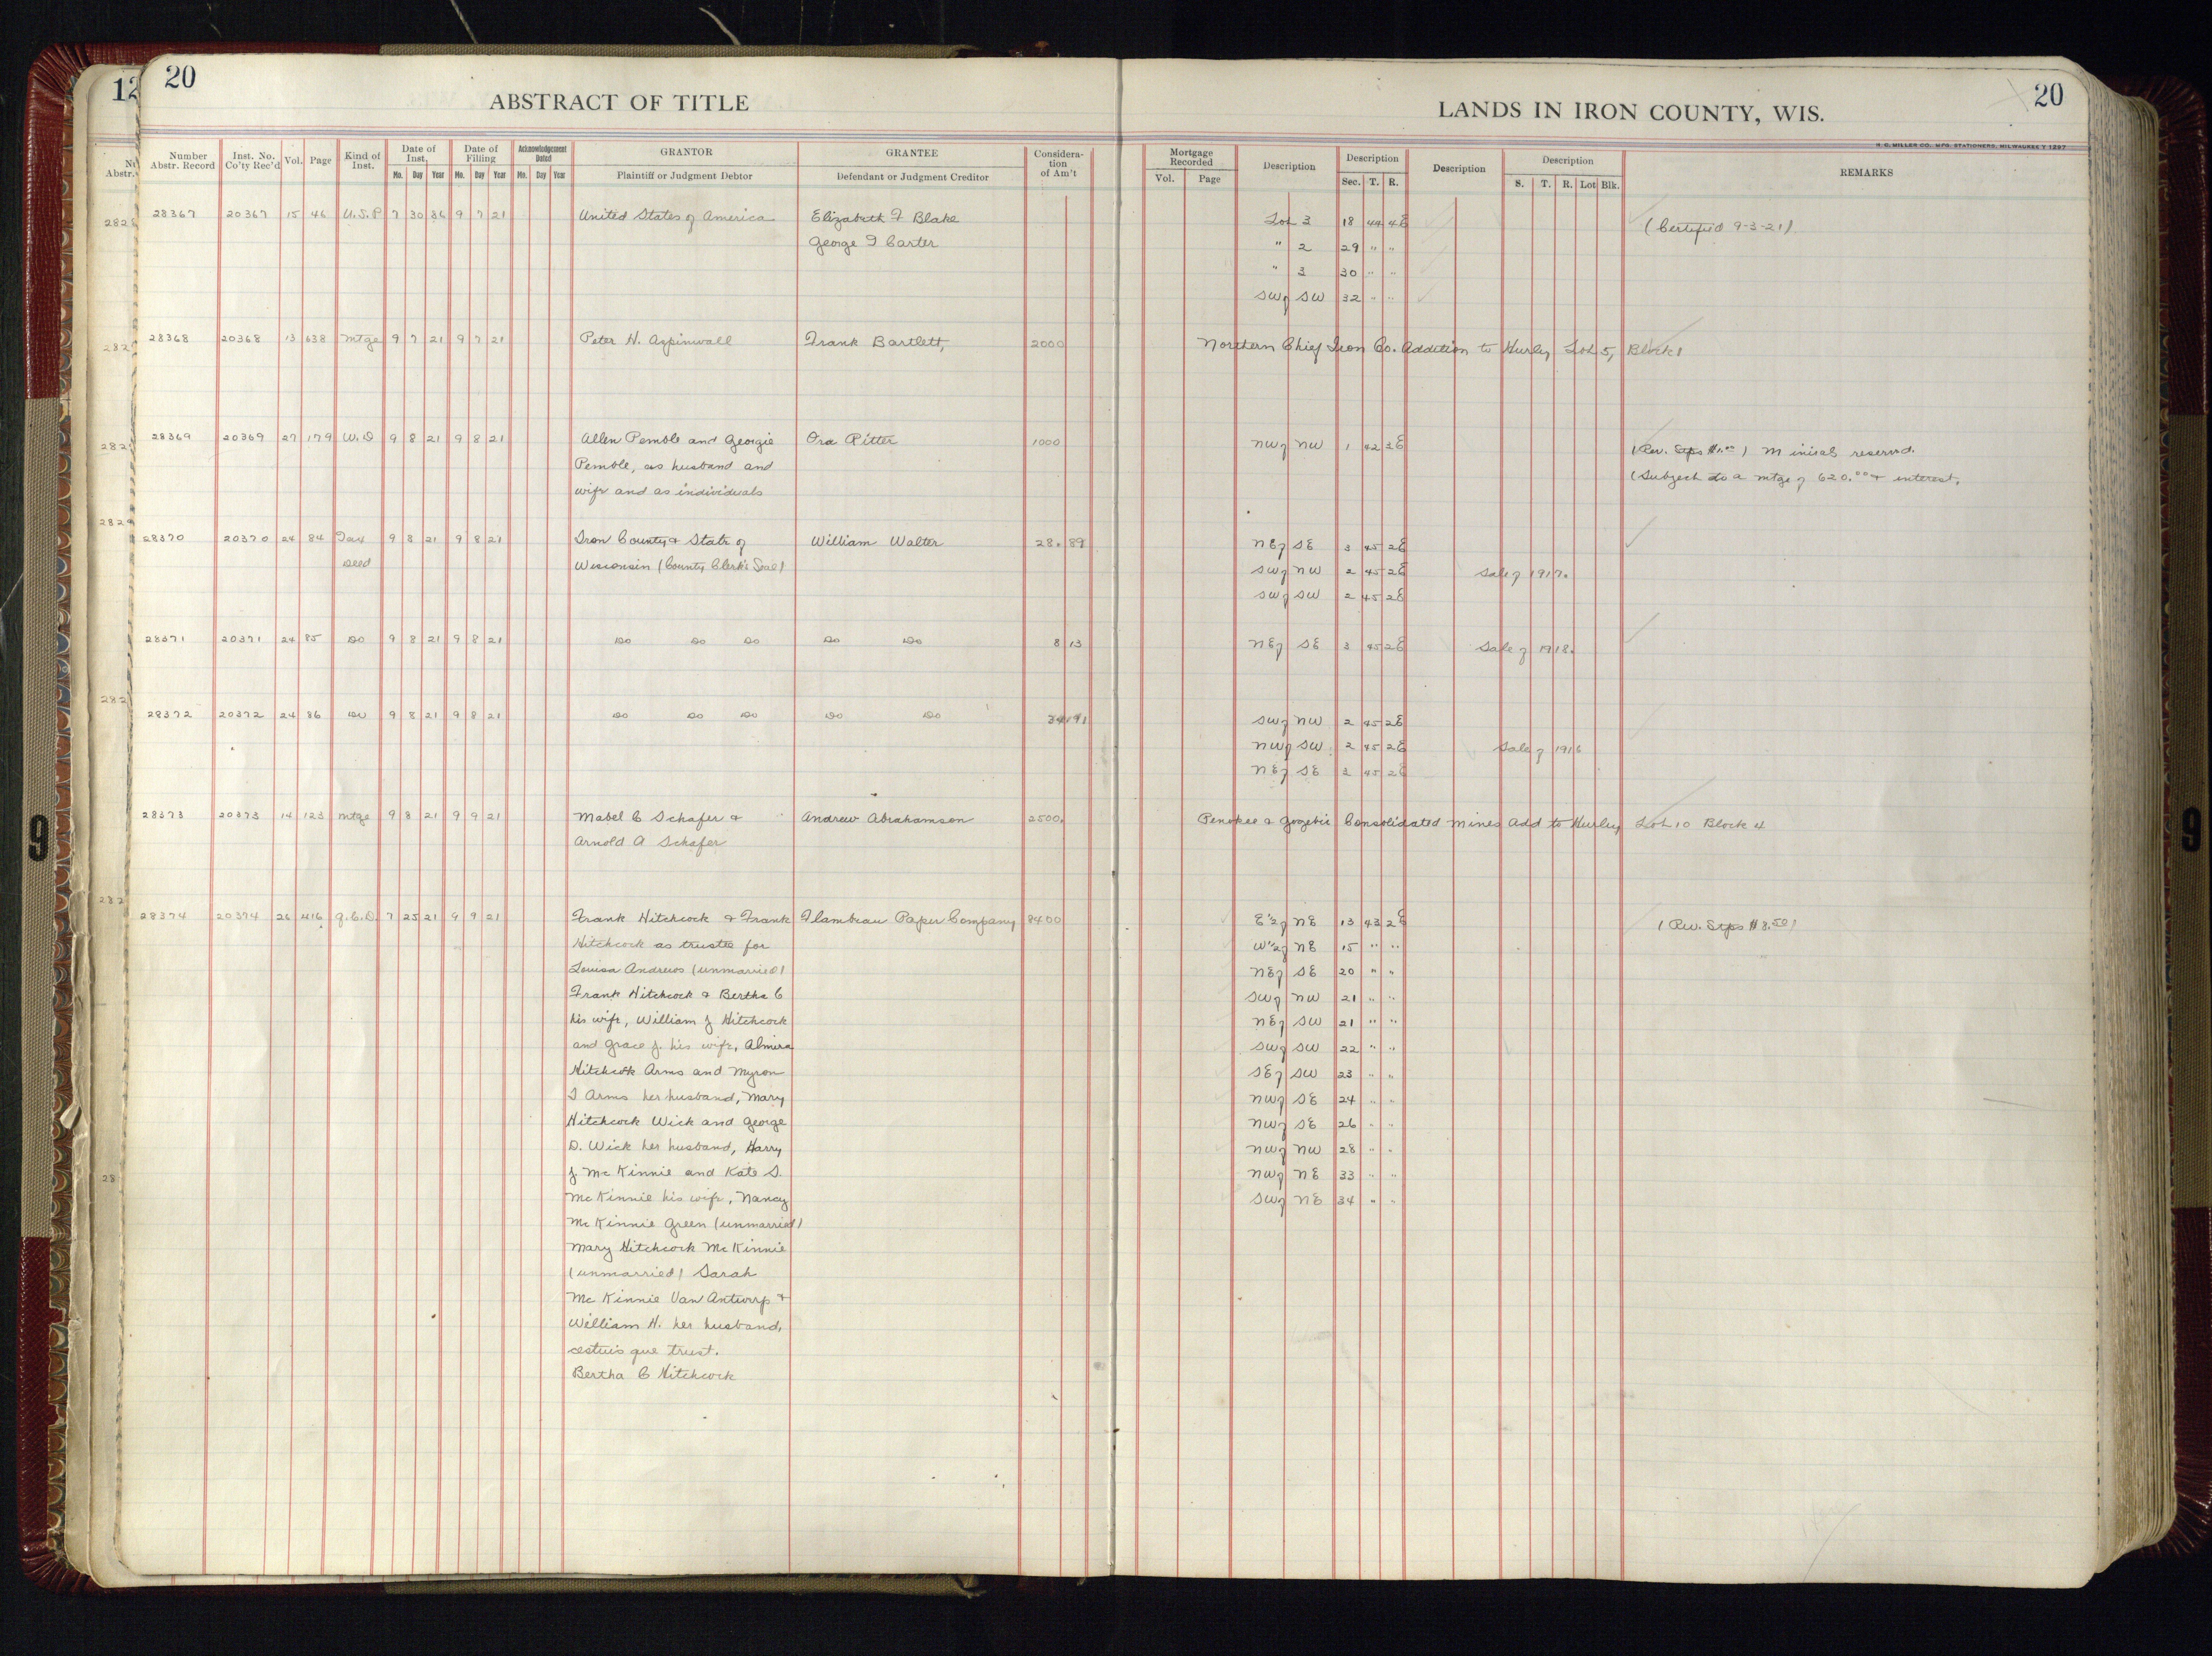 12
20
ABSTRACT OF TITLE
Number Abstr. Record
Inst. No. Co'ty Rec'd
Vol.
Page
Kind of Inst.
Date of Inst.
Mo. Day Year
Date of Filling
Mo. Day Year
Acknowledgement Dated
Mo. Day Year
GRANTOR
Plaintiff or Judgment Debtor
GRANTEE
Defendant or Judgment Creditor
Considera-
tion
of Am't
LANDS IN IRON COUNTY, WIS.
20
H. C. MILLER CO. MFG. STATIONERS, MILWAUKEE
Mortgage Recorded
Vol. Page
Description
Description
Sec. T. R.
Description
Description
S. T. R. Lot Blk.
REMARKS
28367 20367 15 46 U.S.P 7 30 86 9 7 21 United States of America Elizabeth F Blake Lot 3 18 44 4E (Certified 9-3-21)
George I Carter " 2 29 " "
" 3 30 " "
SW of SW 32 " "
28368 20368 13 638 Mtge 9 7 21 9 7 21 Peter H. Aspinwall Frank Bartlett, 2000 Northern Chief Iron Co. Addition to Hurley Lot 5, Block 1
28369 20369 27 179 W.D 9 8 21 9 8 21 Allen Pemble and Georgie Ora Ritter 1000 NW of NW 1 42 3E (Rev. Stps $1.00) Minirals reserved.
Pemble, as husband and (Subject to a mtge of 620.00 + interest.
wife and as individuals
28370 20370 24 84 Tax 9 8 21 9 8 21 Iron County & State of William Walter 28. 89 NE of SE 3 45 2E
Deed Wisconsin (County Clerk's Seal) SW of NW 2 45 2E Sale of 1917.
SW of SW 2 45 2E
28371 20371 24 85 Do 9 8 21 9 8 21 Do Do Do Do Do 8 13 NE of SE 3 45 2E Sale of 1918.
28372 20372 24 86 Do 9 8 21 9 8 21 Do Do Do Do Do 34 91 SW of NW 2 45 2E
NW of SW 2 45 2E Sale of 1916
NE of SE 3 45 2E
28373 20373 14 123 Mtge 9 8 21 9 9 21 Mabel C Schafer & Andrew Abrahamson 2500. Penokee & Gogebic Consolidated Mines Add to Hurley Lot 10 Block 4
Arnold A Schafer
28374 20374 26 416 Q.C.D. 7 25 21 9 9 21 Frank Hitchcock & Frank Flambeau Paper Company 8400 E½ of NE 13 43 2E (Rev. Stps $8.50)
Hitchcock as trustee for W½ of NE 15 " "
Louisa Andrews (unmarried) NE of SE 20 " "
Frank Hitchcock & Bertha C SW of NW 21 " "
his wife, William J Hitchcock NE of SW 21 " "
and Grace J. his wife, Almira SW of SW 22 " "
Hitchcock Arms and Myron SE of SW 23 " "
I Arms her husband, Mary NW of SE 24 " "
Hitchcock Wick and George NW of SE 26 " "
D. Wick her husband, Harry NW of NW 28 " "
J. McKinnie and Kate S. NW of NE 33 " "
McKinnie his wife, Nancy SW of NE 34 " "
McKinnie Green (unmarried)
Mary Hitchcock McKinnie
(unmarried) Sarah
McKinnie Van Antwerp &
William H. her husband,
cestuis que trust.
Bertha C Hitchcock
9
9